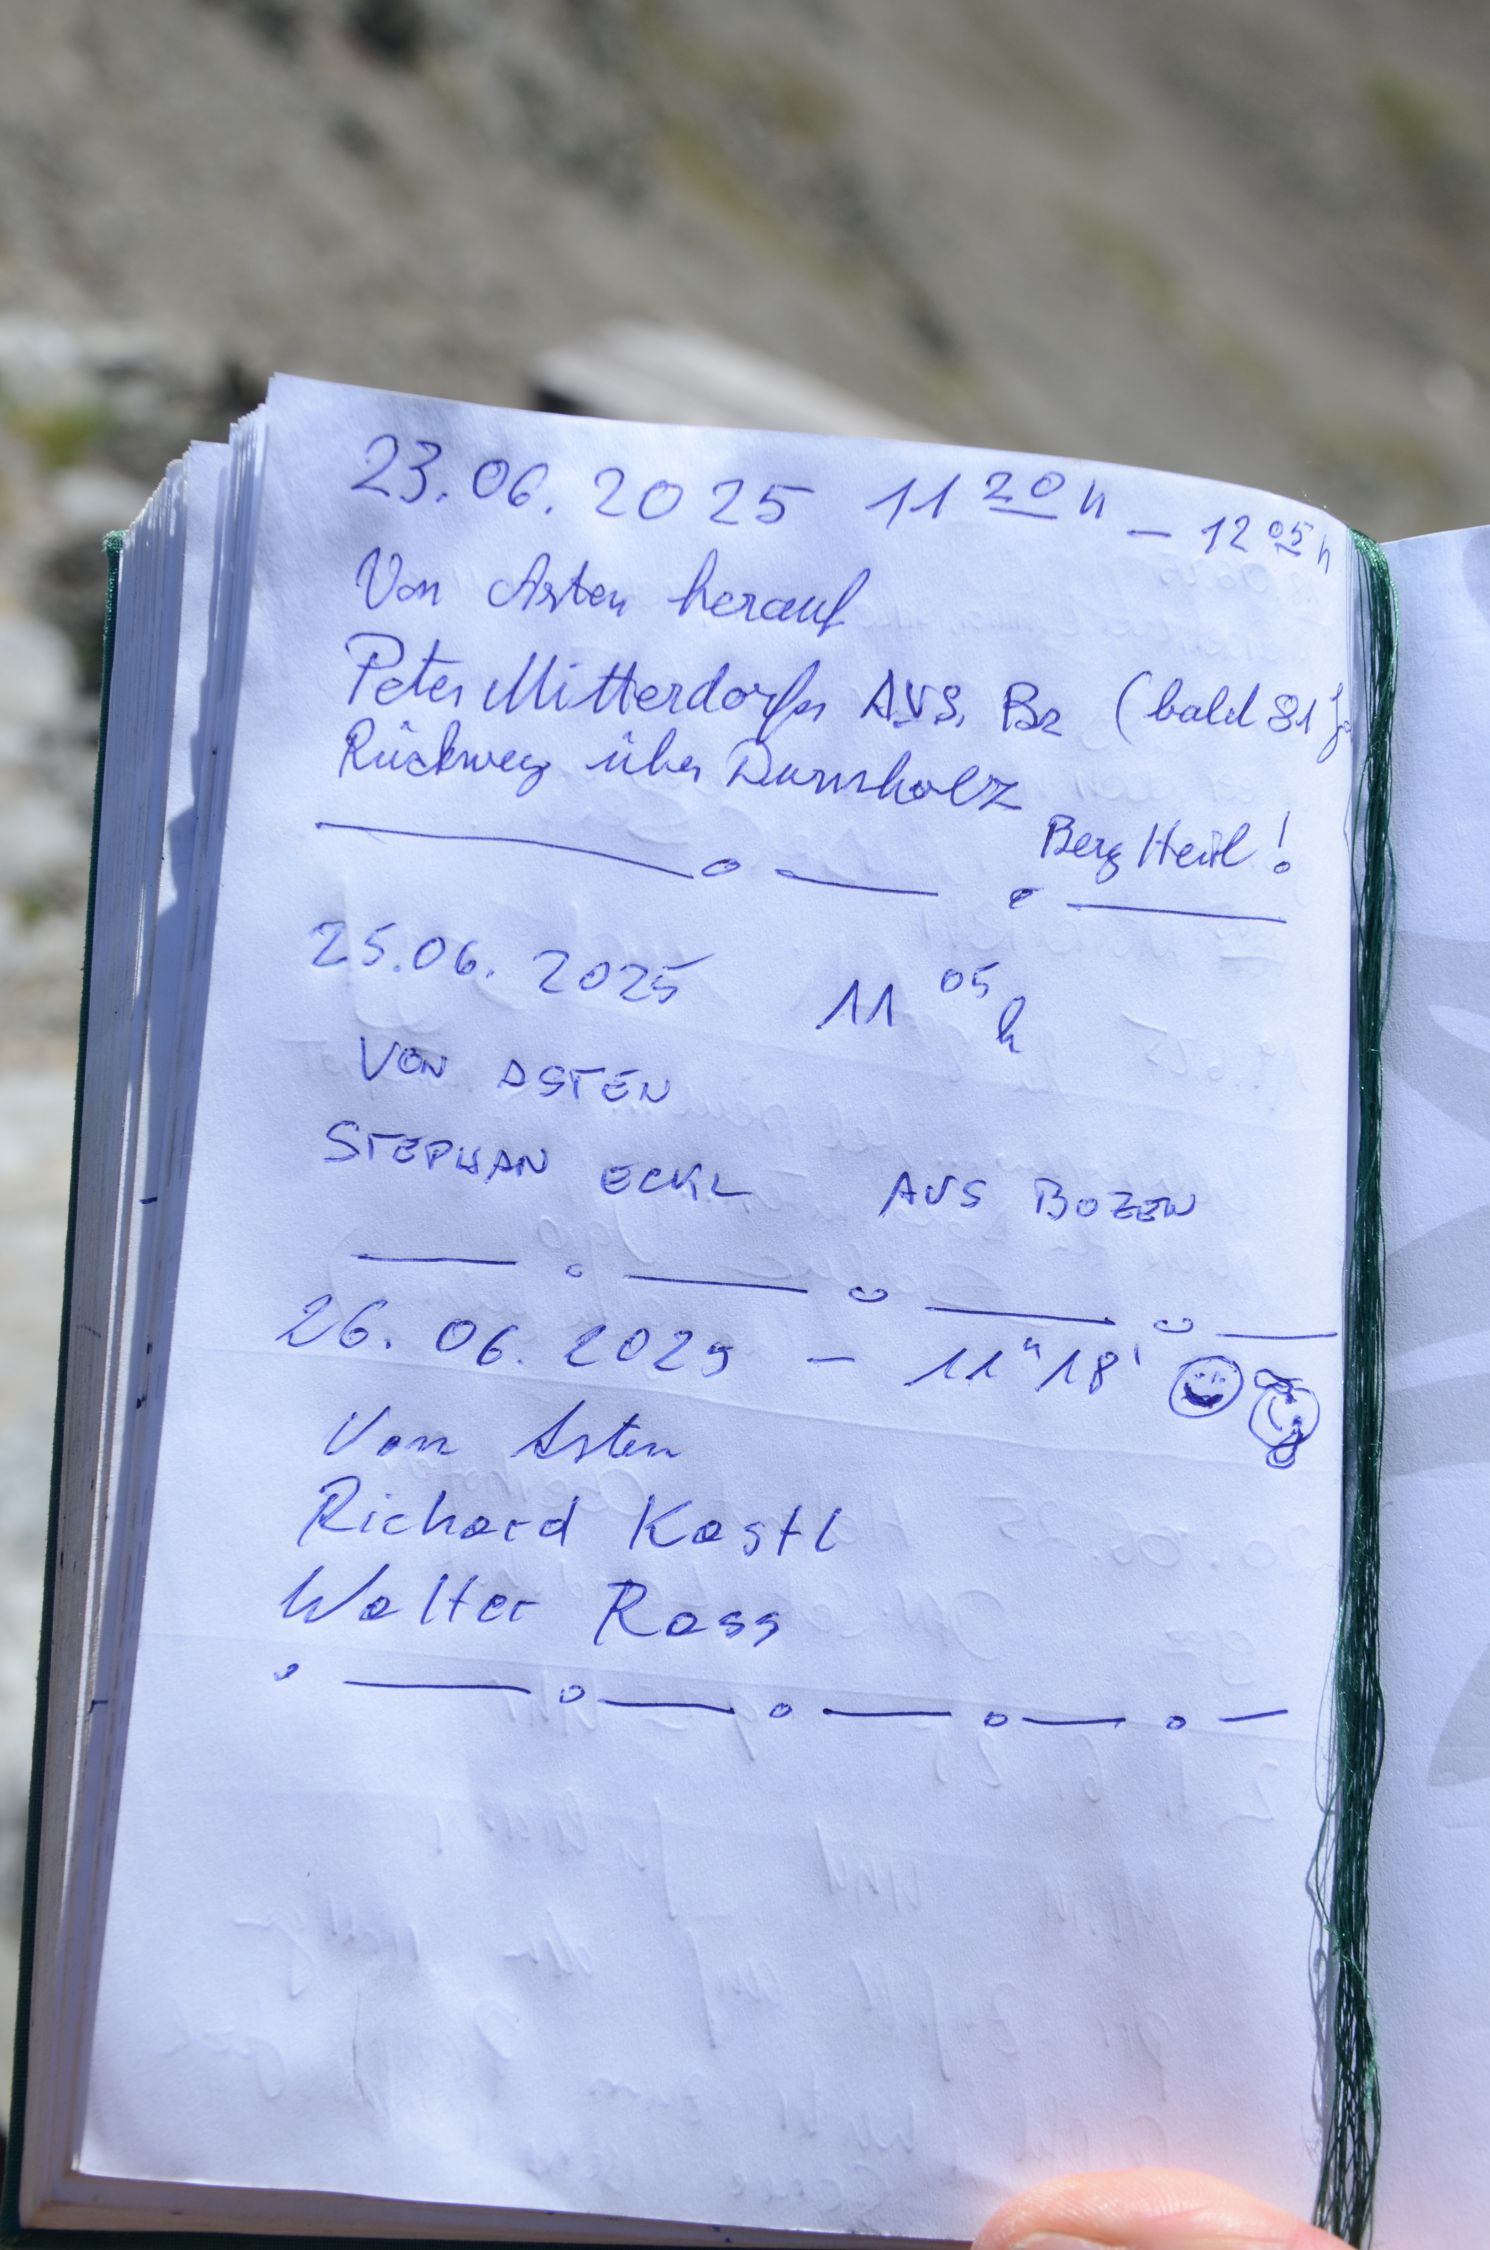 23.06.2025 11 20 h – 12 05 h
Von Asten herauf
Peter Mitterdorfer AVS. Bz (bald 81 J
Rückweg über Durnholz
Berg Heil!
25.06. 2025 11 05 h
VON ASTEN
STEPHAN ECKL AUS BOZEN
26. 06. 2025 – 11h 18'
Von Asten
Richard Kastl
Walter Rass